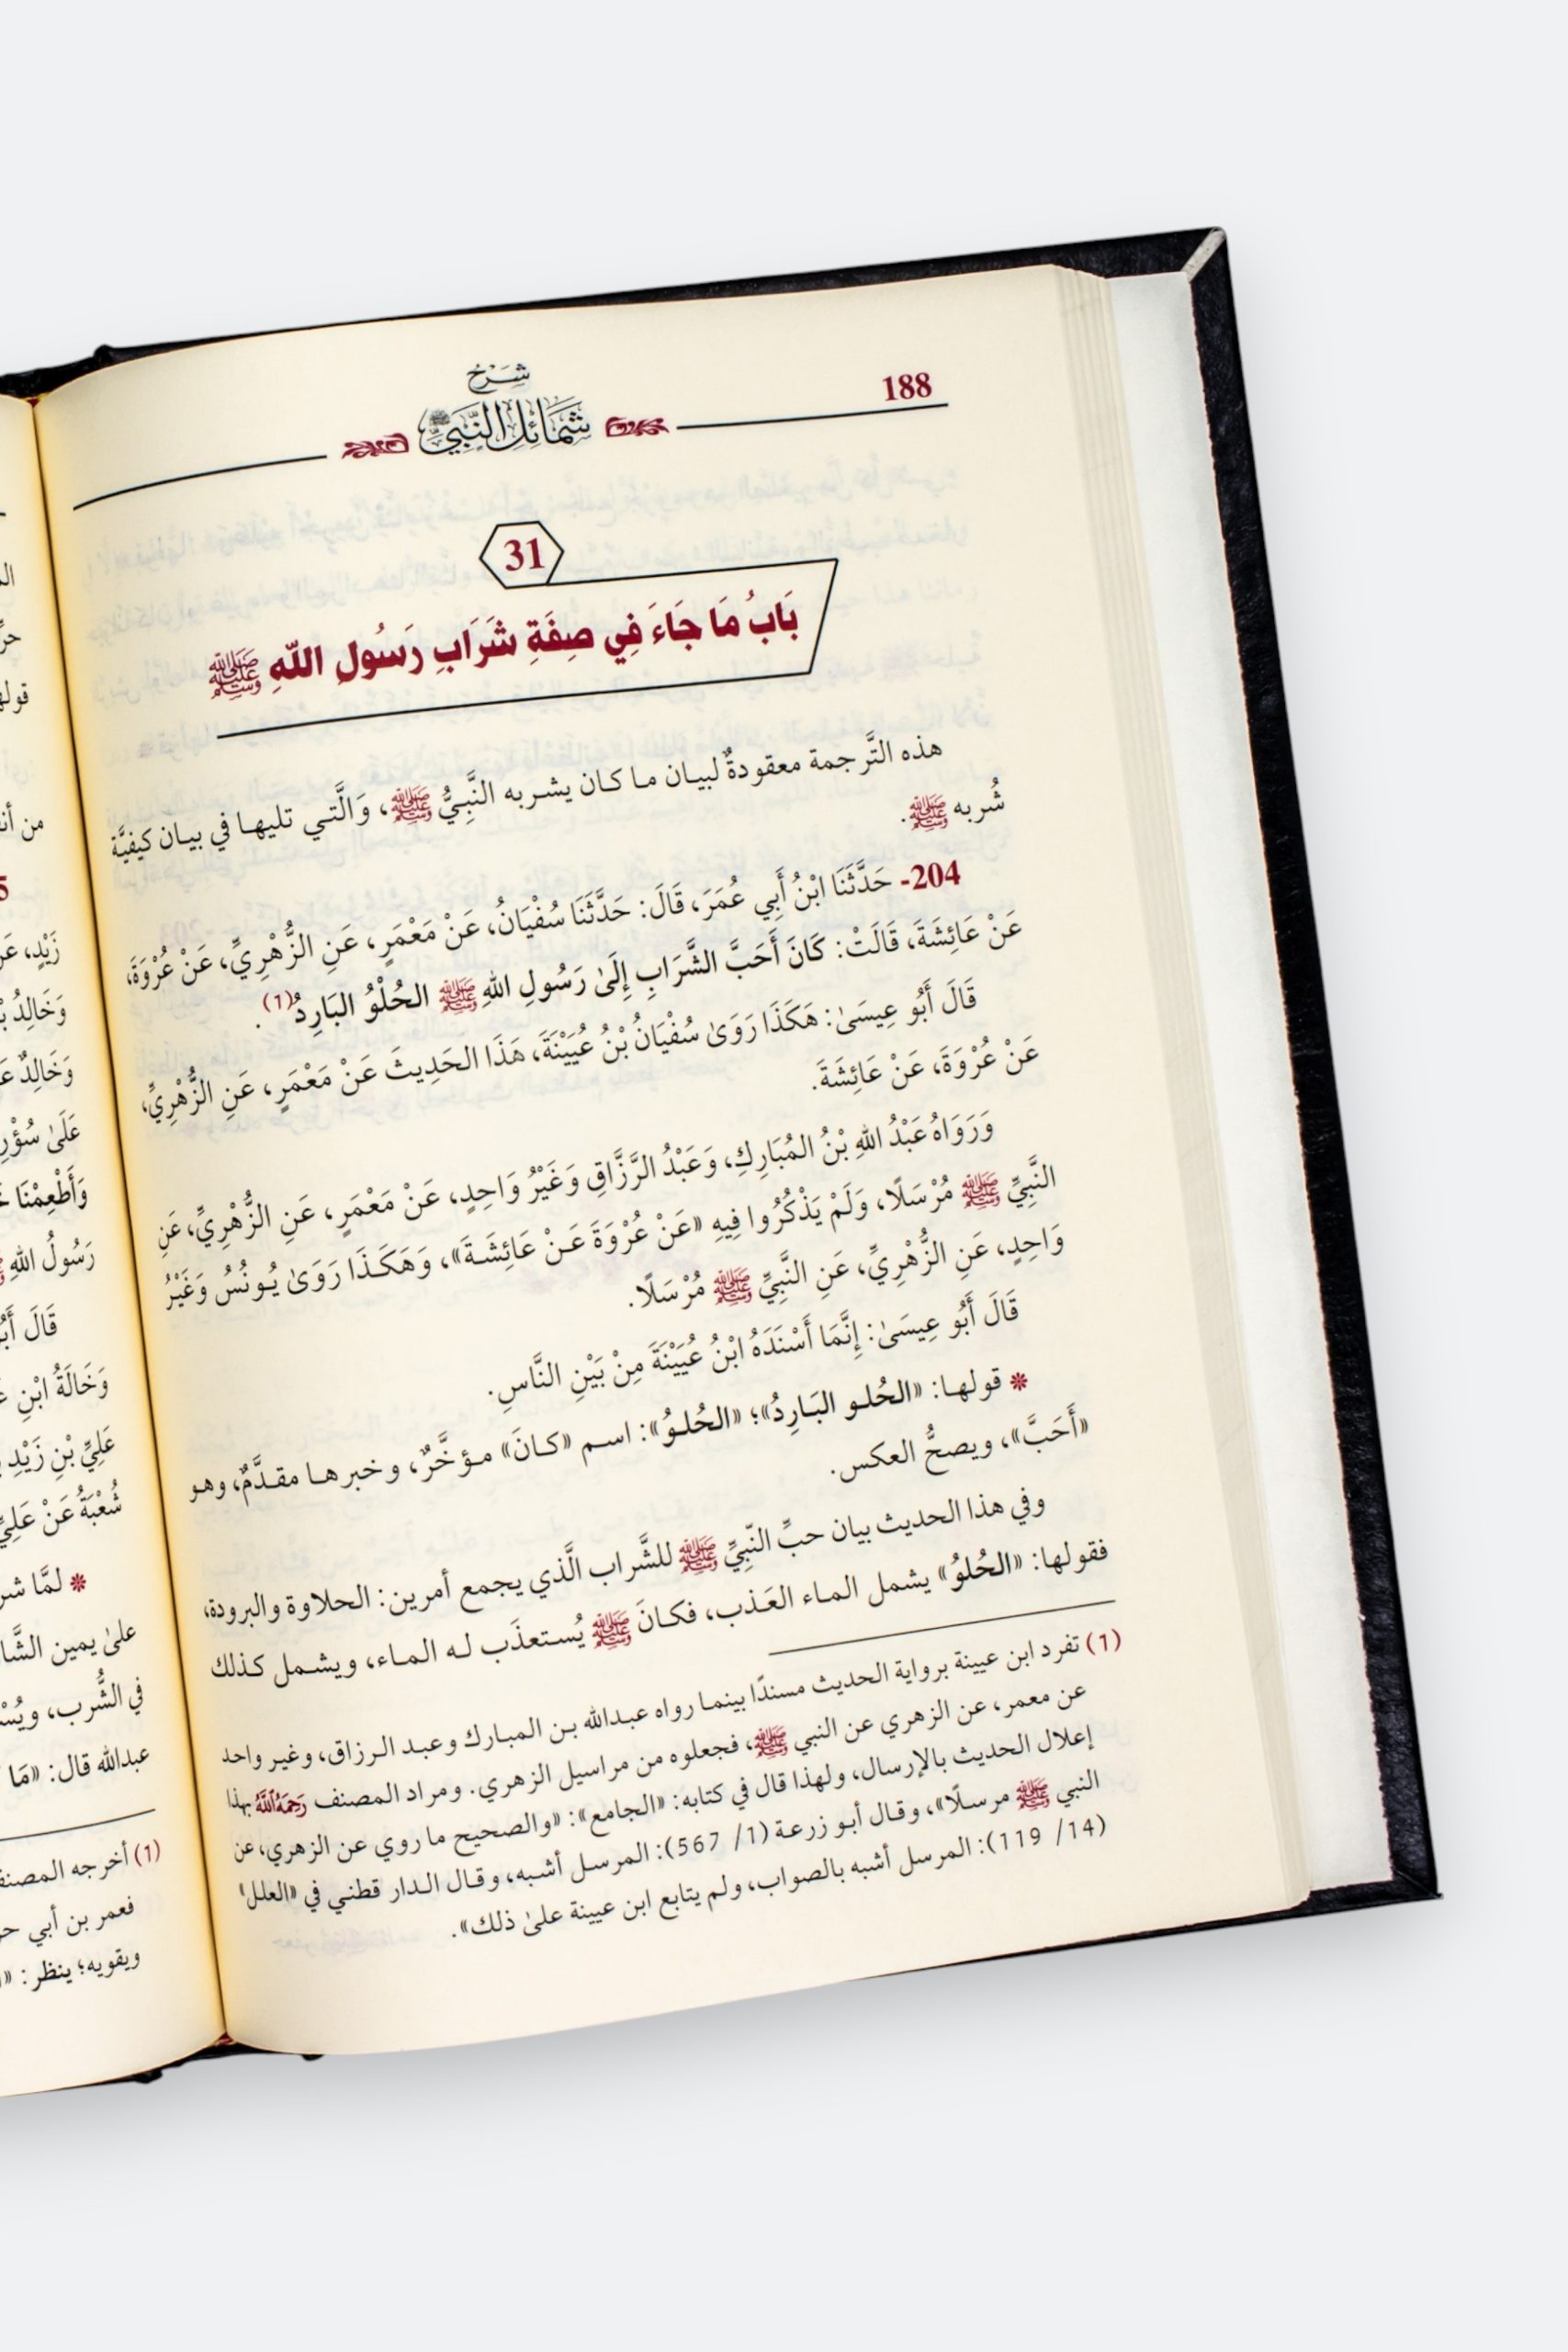 188
شَرْح
شَمَائِل النَّبِيِّ ﷺ
31
بَابُ مَا جَاءَ فِي صِفَةِ شَرَابِ رَسُولِ اللَّهِ ﷺ
هذه التَّرجمة معقودةٌ لبيـان مـا كـان يشـربه النَّبِـيُّ ﷺ، وَالَّتـي تليهـا في بيـان كيفيَّة
شُربه ﷺ.
204- حَدَّثَنَا ابْنُ أَبِي عُمَرَ، قَالَ: حَدَّثَنَا سُفْيَانُ، عَنْ مَعْمَرٍ، عَنِ الزُّهْرِيِّ، عَنْ عُرْوَةَ،
عَنْ عَائِشَةَ، قَالَتْ: كَانَ أَحَبَّ الشَّرَابِ إِلَىٰ رَسُولِ اللهِ ﷺ الحُلْوُ البَارِدُ(1).
قَالَ أَبُو عِيسَىٰ: هَكَذَا رَوَىٰ سُفْيَانُ بْنُ عُيَيْنَةَ، هَذَا الحَدِيثَ عَنْ مَعْمَرٍ، عَنِ الزُّهْرِيِّ،
عَنْ عُرْوَةَ، عَنْ عَائِشَةَ.
وَرَوَاهُ عَبْدُ اللهِ بْنُ المُبَارِكِ، وَعَبْدُ الرَّزَّاقِ وَغَيْرُ وَاحِدٍ، عَنْ مَعْمَرٍ، عَنِ الزُّهْرِيِّ، عَنِ
النَّبِيِّ ﷺ مُرْسَلًا، وَلَمْ يَذْكُرُوا فِيهِ «عَنْ عُرْوَةَ عَـنْ عَائِشَـةَ»، وَهَكَـذَا رَوَىٰ يُـونُسُ وَغَيْرُ
وَاحِدٍ، عَنِ الزُّهْرِيِّ، عَنِ النَّبِيِّ ﷺ مُرْسَلًا.
قَالَ أَبُو عِيسَىٰ: إِنَّمَا أَسْنَدَهُ ابْنُ عُيَيْنَةَ مِنْ بَيْنِ النَّاسِ.
* قولهـا: «الحُلـو البَـارِدُ»؛ «الحُلـوُ»: اسـم «كـانَ» مـؤخَّرٌ، وخبرهـا مقـدَّمٌ، وهـو
«أَحَبَّ»، ويصحُّ العكس.
وفي هذا الحديث بيان حبِّ النّبِيِّ ﷺ للشَّراب الَّذي يجمع أمرين: الحلاوة والبرودة،
فقولها: «الحُلوُ» يشمل المـاء العَـذب، فكـانَ ﷺ يُسـتعذَب لـه المـاء، ويشـمل كـذلك
(1) تفرد ابن عيينة برواية الحديث مسندًا بينمـا رواه عبـدالله بـن المبـارك وعبـد الـرزاق، وغيـر واحد
عن معمر، عن الزهري عن النبي ﷺ، فجعلوه من مراسيل الزهري. ومراد المصنف رَحِمَهُ اللَّهُ بهذا
إعلال الحديث بالإرسال، ولهذا قال في كتابه: «الجامع»: «والصحيح ما روي عن الزهري، عن
النبي ﷺ مرسـلًا»، وقـال أبـو زرعـة (1/ 567): المرسـل أشـبه، وقـال الـدار قطنـي في «العلل»
(14/ 119): المرسل أشبه بالصواب، ولم يتابع ابن عيينة علىٰ ذلك».
قوله
من أن
زَيْدٍ، عَنْ
وَخَالِدُ
وَخَالِدٌ
عَلَىٰ سُؤْرِ
وَأَطْعِمْنَا
رَسُولُ اللهِ
قَالَ أَبُ
وَخَالَةُ ابْنِ
عَلِيِّ بْنِ زَيْدِ
شُعْبَةُ عَنْ عَلِيِّ
* لمَّا شر
علىٰ يمين الشَّا
في الشُّرب، ويُسْ
عبدالله قال: «مَا
(1) أخرجه المصنف
فعمر بن أبي حر
ويقويه؛ ينظر: «